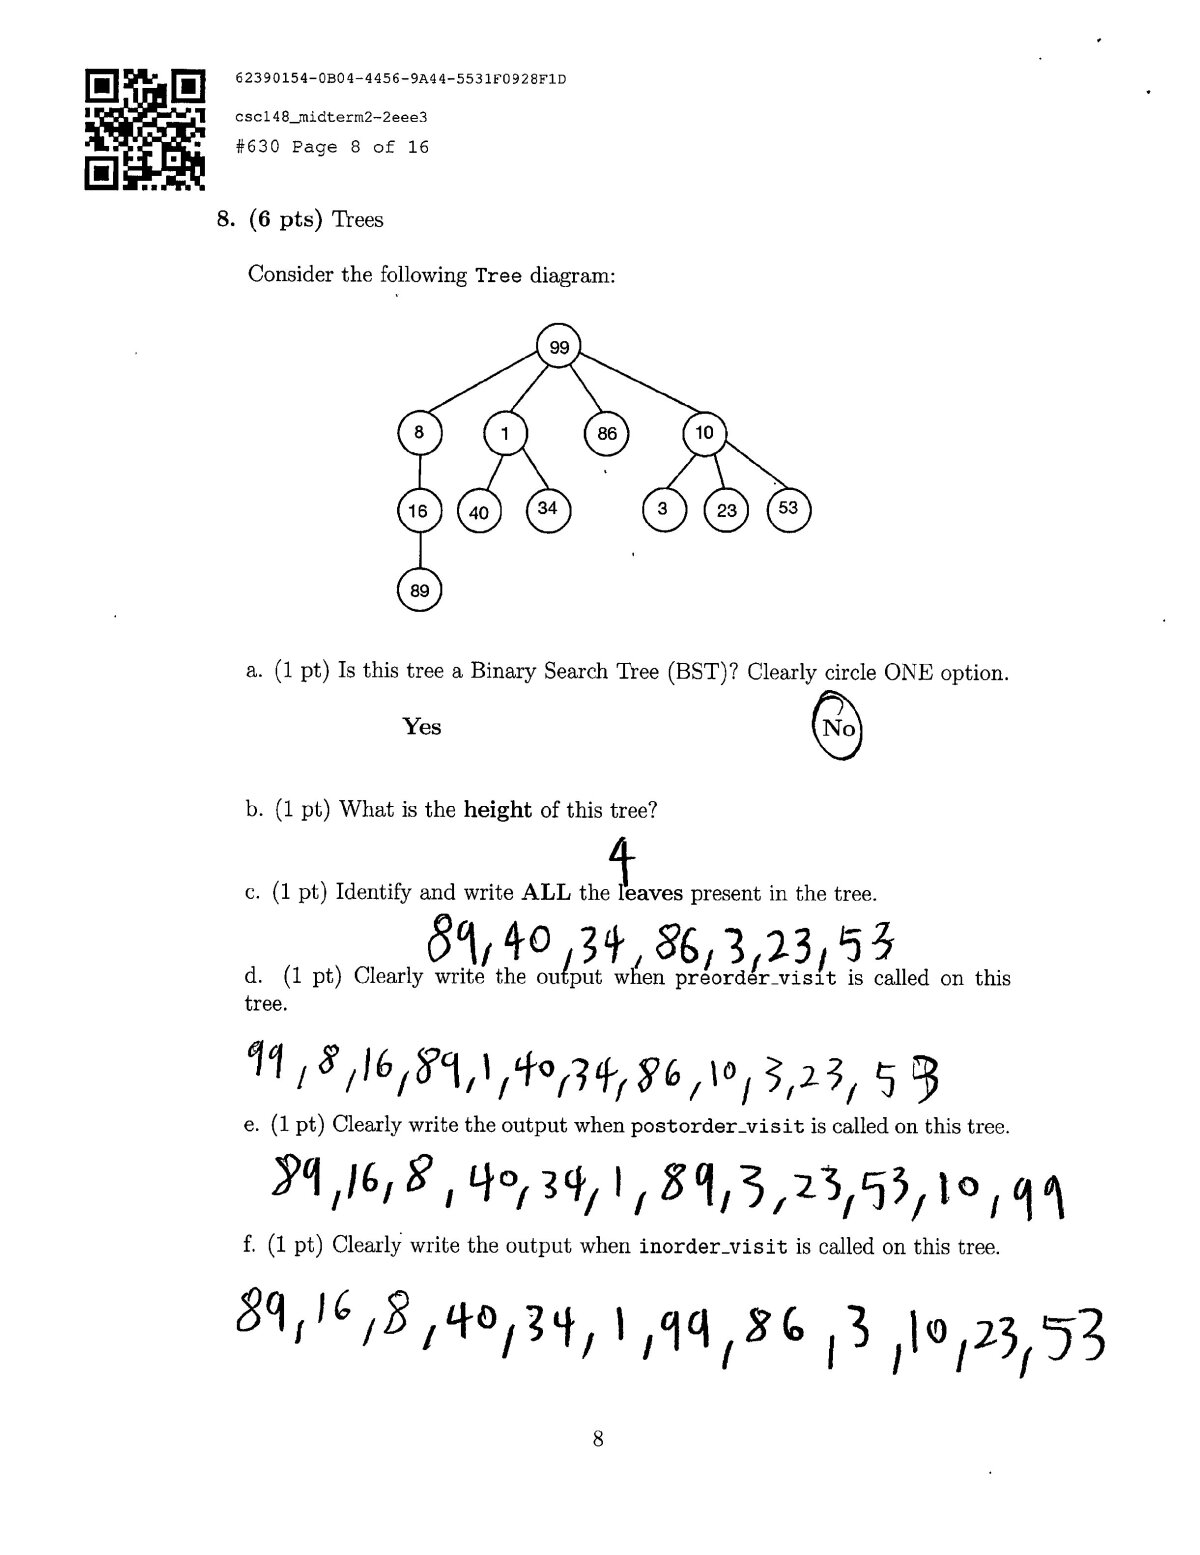 62390154-0B04-4456-9A44-5531F0928F1D
csc148_midterm2-2eee3
#630 Page 8 of 16
8. (6 pts) Trees
Consider the following Tree diagram:
99
8 1 86 10
16 40 34 3 23 53
89
a. (1 pt) Is this tree a Binary Search Tree (BST)? Clearly circle ONE option.
Yes No
b. (1 pt) What is the height of this tree?
4
c. (1 pt) Identify and write ALL the leaves present in the tree.
89, 40, 34, 86, 3, 23, 53
d. (1 pt) Clearly write the output when preorder_visit is called on this
tree.
99, 8, 16, 89, 1, 40, 34, 86, 10, 3, 23, 53
e. (1 pt) Clearly write the output when postorder_visit is called on this tree.
89, 16, 8, 40, 34, 1, 89, 3, 23, 53, 10, 99
f. (1 pt) Clearly write the output when inorder_visit is called on this tree.
89, 16, 8, 40, 34, 1, 99, 86, 3, 10, 23, 53
8